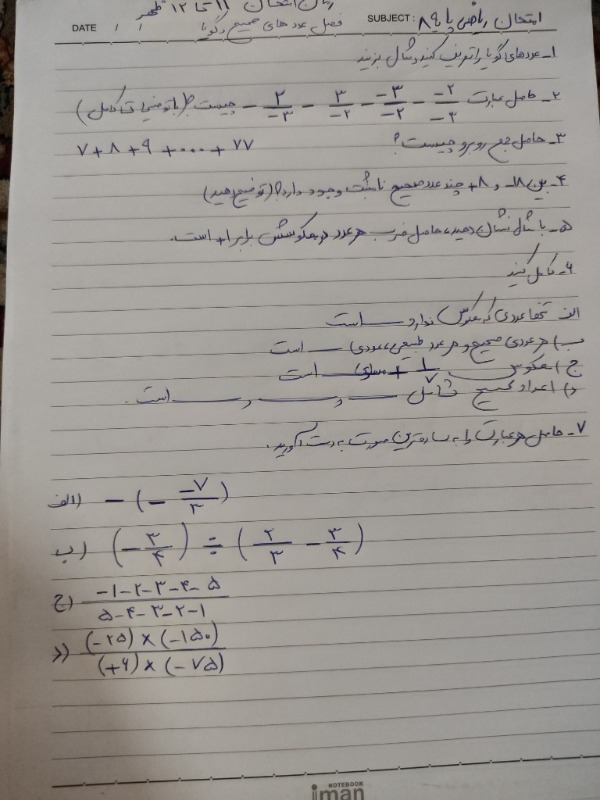 زمان امتحان ۱۱ تا ۱۲ ظهر
امتحان ریاضی پایه ۸ SUBJECT: فصل عددهای صحیح و گویا DATE / /
۱_ عددهای گویا را تعریف کنید و مثال بزنید
۲_ حاصل عبارت -۲/-۳ - -۳/-۲ - ۳/-۲ - ۲/-۳ - چیست؟ (با توضیحات کامل)
۳_ حاصل جمع روبرو چیست؟ ۷+۸+۹+....+۷۷
۴_ بین ۱۸- و ۸+ چند عدد صحیح نامثبت وجود دارد؟ (توضیح دهید)
۵_ با مثال نشان دهید، حاصل ضرب هر عدد در معکوسش برابر ۱+ است.
۶_ کامل کنید
الف تنها عددی که معکوس ندارد ــــ است
ب) هر عددی صحیح و هر عدد طبیعی، عددی ــــ است
ج) معکوس + ۱/۷ مساوی ــــ است
د) اعداد صحیح شامل ــــ و ــــ و ــــ است.
۷_ حاصل هر عبارت را به ساده‌ترین صورت به دست آورید.
الف) -(- -۷/۳)
ب) (-۳/۴) ÷ (۲/۳ - ۳/۴)
ج) -۱-۲-۳-۴-۵ / ۵-۴-۳-۲-۱
د) (-۲۵) × (-۱۵۰) / (+۶) × (-۷۵)
NOTEBOOK
iman